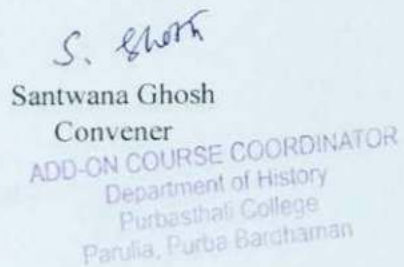 S. Ghosh
Santwana Ghosh
Convener
ADD-ON COURSE COORDINATOR
Department of History
Purbasthali College
Parulia, Purba Bardhaman